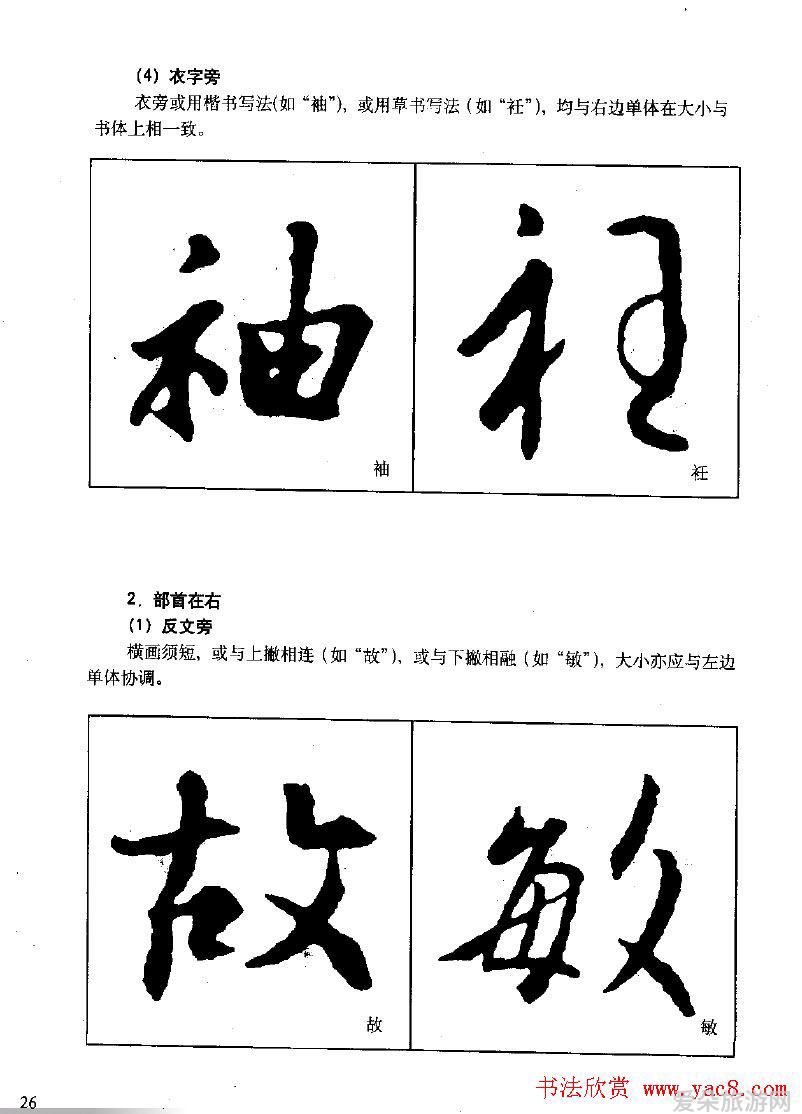 (4) 衣字旁
衣旁或用楷书写法(如“袖”)，或用草书写法（如“衽”)，均与右边单体在大小与
书体上相一致。
袖 衽
袖 衽
2．部首在右
(1) 反文旁
横画须短，或与上撇相连（如“故”)，或与下撇相融（如“敏”)，大小亦应与左边
单体协调。
故 敏
故 敏
26
书法欣赏 www.yac8.com
爱朵旅游网